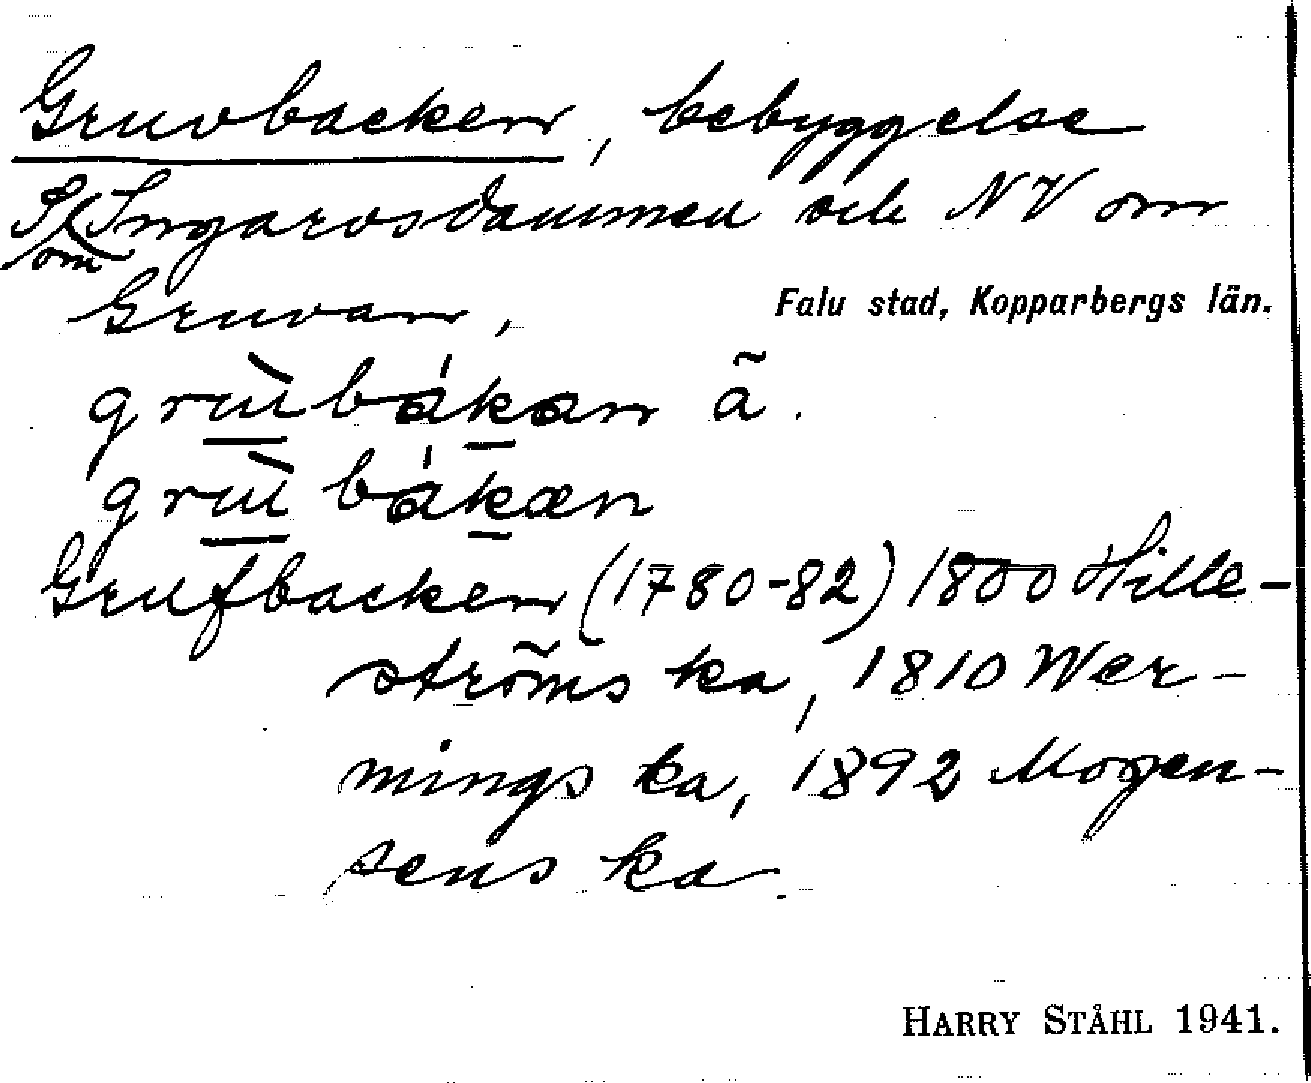 Gruvbacken, bebyggelse
S om Ingarvsdammen och NV om
Gruvan,
Falu stad, Kopparbergs län.
grùbákan ã.
grù bákæn
Grufbacken (1780-82) 1800 Hille-
ströms ka, 1810 Wer-
mings ka, 1892 Mogen-
sens ka.
HARRY STÅHL 1941.